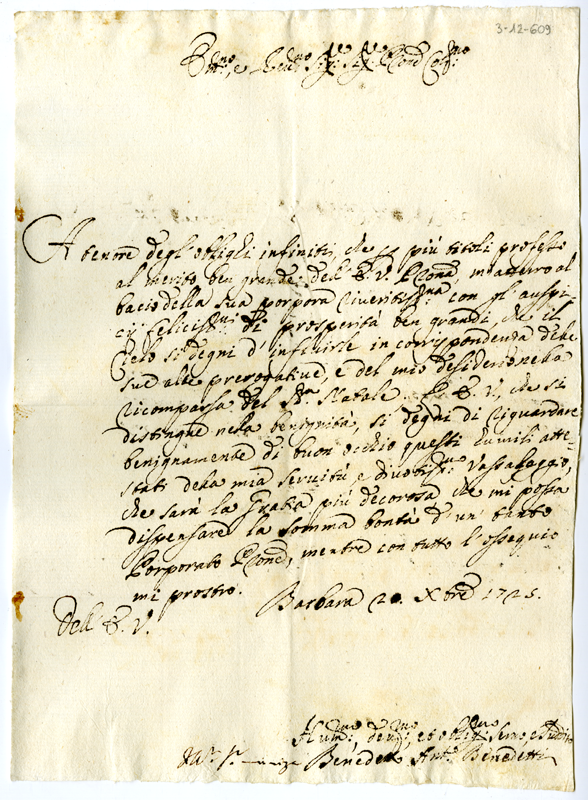 3-12-609
E.mo e Re.mo Sig.re Sig.re P.rone Col.mo
A tenore degl'oblighi infiniti, che per più titoli professo
al merito ben grande dell'E. V. P.rone m'atterro al
bacio della sua porpora riveritiss.ma con gl'auspi-
cij felicis.mi di prosperità ben grandi, che il
Cielo si degni d'influirle in corrispondenza delle
sue alte prerogative, e del mio desiderio nella
ricomparsa del S.to Natale. P. E. V., che si
distingue nella benignità, si degni di riguardare
benignamente di buon occhio questi humili atte-
stati della mia servitù, e divotiss.mo Vassalaggio,
che sarà la Grazia più decorosa che mi possa
dispensare la somma bontà d'un tanto
Porporato P.rone, mentre con tutto l'ossequio
mi prostro.
Barbara 20. Xbre 1725.
Dell'E. V.
Hum.mo, dev.mo, et obblig.mo Servo e Suddito
Benedetto Ant.o Benedetti